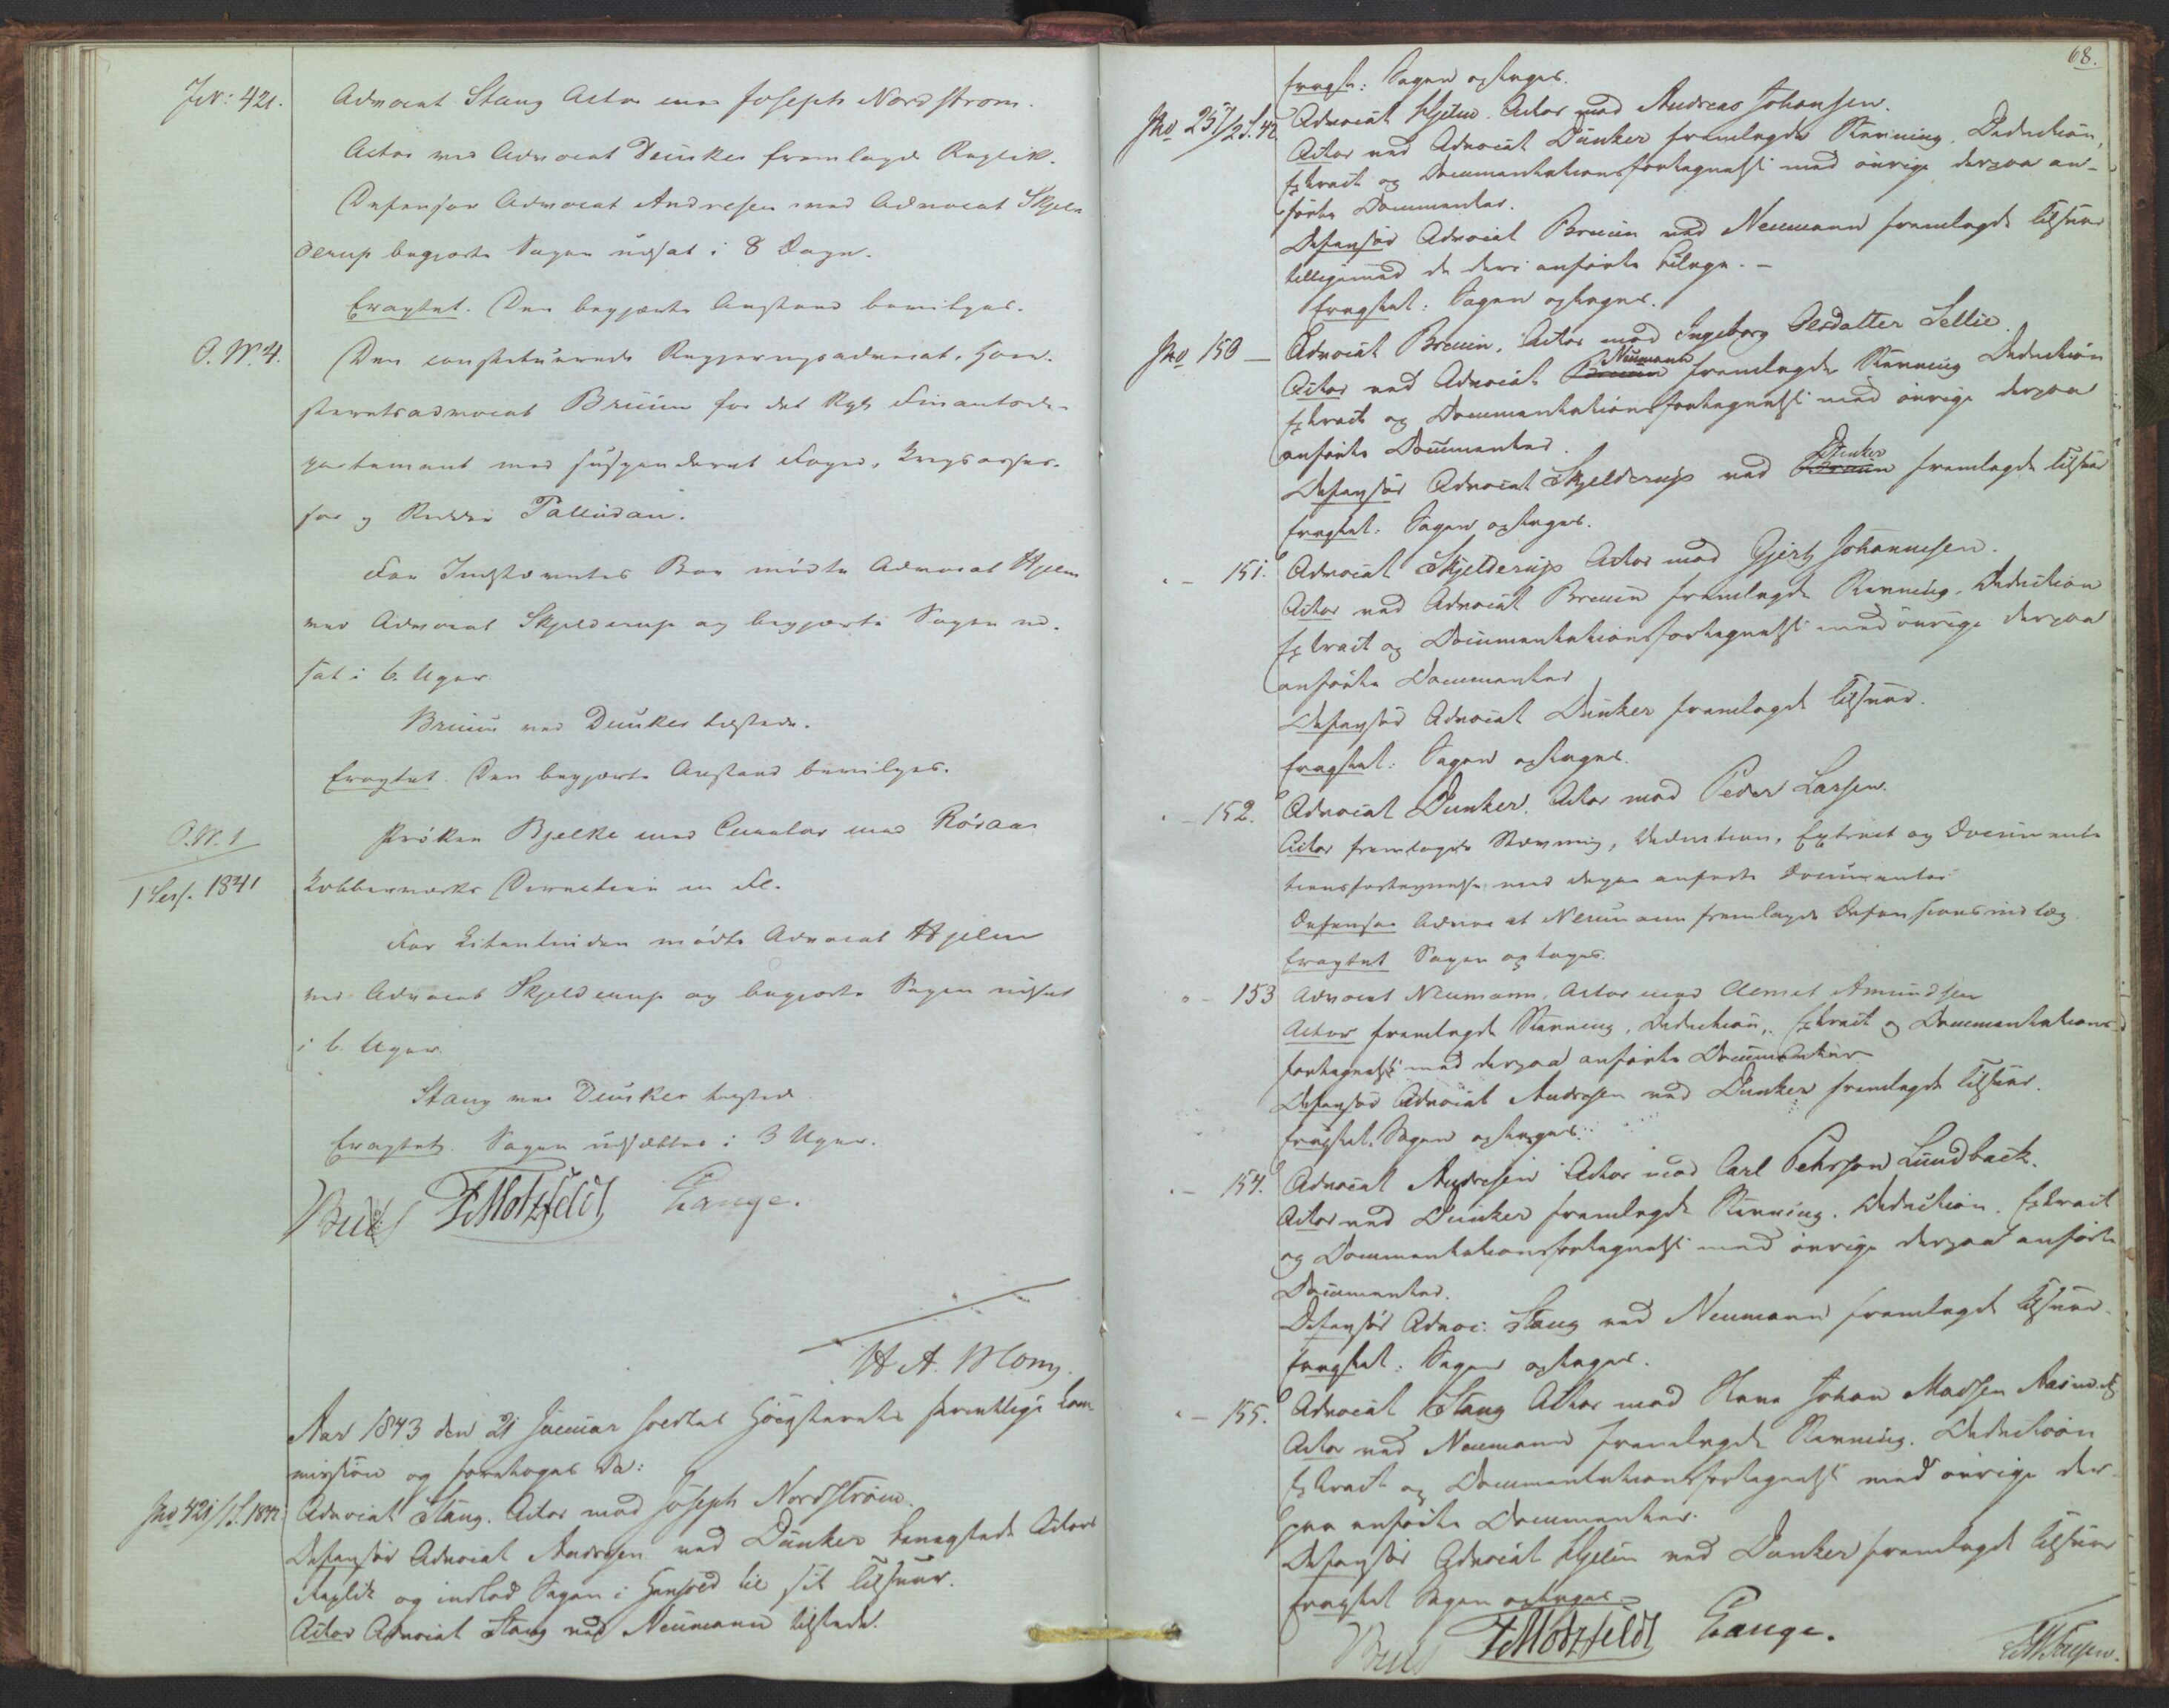 No: 421.
Advocat Stang Actor mod Joseph Nordstrøm.
Actor ved Advocat Dunker fremlagde Replik.
Defensor Advocat Andresen ved Advocat Skjel-
derup begjærte Sagen udsat i 8 Dage.
Eragtet. Den begjærte Anstand bevilges.
O. N. 4.
Den constituerede Regjeringsadvocat, Høie-
steretsadvocat Bruun for det Kgl. Finantsde-
partement mod suspenderet Foged, Krigsasses-
sor og Ridder Palludan.
For Indstævntes Bo mødte Advocat Hjelm
ved Advocat Skjelderup og begjærte Sagen ud-
sat i 6. Uger.
Bruun ved Dunker tilstede.
Eragtet. Den begjærte Anstand bevilges.
O. N. 1
1 Sess. 1841
Frøken Bjelke med Curator mod Røraas
Kobberværks Direction m. Fl.
For Citantinden mødte Advocat Hjelm
ved Advocat Skjelderup og begjærte Sagen udsat
i 6. Uger.
Stang ved Dunker tilstede.
Eragtet. Sagen udsættes i 3 Uger.
Bull F Motzfeldt Lange.
H. A. Mony.
Aar 1843 den 21 Januar holdtes Høiesterets skriftlige Com-
mission og foretoges da:
No 421/1S. 1842.
Advocat Stang, Actor mod Joseph Nordstrøm.
Defensor Advocat Andresen ved Dunker Actors
Replik og indlod Sagen i Henhold til sit Tilsvar.
Actor Advocat Stang ved Neumann tilstede.
68.
Eragt: Sagen optages.
No 257/2S. 42
Advocat Hjelm, Actor mod Andreas Johansen.
Actor ved Advocat Dunker fremlagde Stævning, Deduction,
Extract og Documentationsfortegnelse med øvrige derpaa an-
førte Documenter.
Defensor Advocat Bruun ved Neumann fremlagde Tilsvar
tilligemed de deri anførte Bilage. –
Eragtet: Sagen optages.
No 150 –
Advocat Bruun, Actor mod Ingeborg Olsdatter Sellie.
Actor ved Advocat Bruun Neumann fremlagde Stævning Deduction
Extract og Documentationsfortegnelse med øvrige derpaa
anførte Documenter.
Defensor Advocat Skjelderup ved Bruun Dunker fremlagde Tilsvar
Eragtet: Sagen optages.
" – 151.
Advocat Skjelderup Actor mod Gjert Johannesen.
Actor ved Advocat Bruun fremlagde Stævning, Deduction
Extract og Documentationsfortegnelse med øvrige derpaa
anførte Documenter
Defensor Advocat Dunker fremlagde Tilsvar.
Eragtet: Sagen optages.
" – 152.
Advocat Dunker, Actor mod Peder Larsen.
Actor fremlagde Stævning, Deduction, Extract og Documenta-
tionsfortegnelse med derpaa anførte Documenter
Defensor Advocat Neumann fremlagde Defensionsindlæg.
Eragtet Sagen optages.
" – 153
Advocat Neumann, Actor mod Clemet Amundsen
Actor fremlagde Stævning, Deduction, Extract og Documentations-
fortegnelse med derpaa anførte Documenter
Defensor Advocat Andresen ved Dunker fremlagde Tilsvar.
Eragtet. Sagen optages.
" – 154.
Advocat Andresen Actor mod Carl Pehrson Lundback.
Actor ved Dunker fremlagde Stævning. Deduction. Extract
og Documentationsfortegnelse med øvrige derpaa anførte
Documenter.
Defensor Advoc: Stang ved Neumann fremlagde Tilsvar.
Eragtet: Sagen optages.
" – 155.
Advocat Stang Actor mod Hans Johan Madsen
Actor ved Neumann fremlagde Stævning. Deduction
Extract og Documentationsfortegnelse med øvrige der-
paa anførte Documenter.
Defensor Advocat Hjelm ved Dunker fremlagde Tilsvar
Eragtet Sagen optages –
Bull F Motzfeldt Lange.